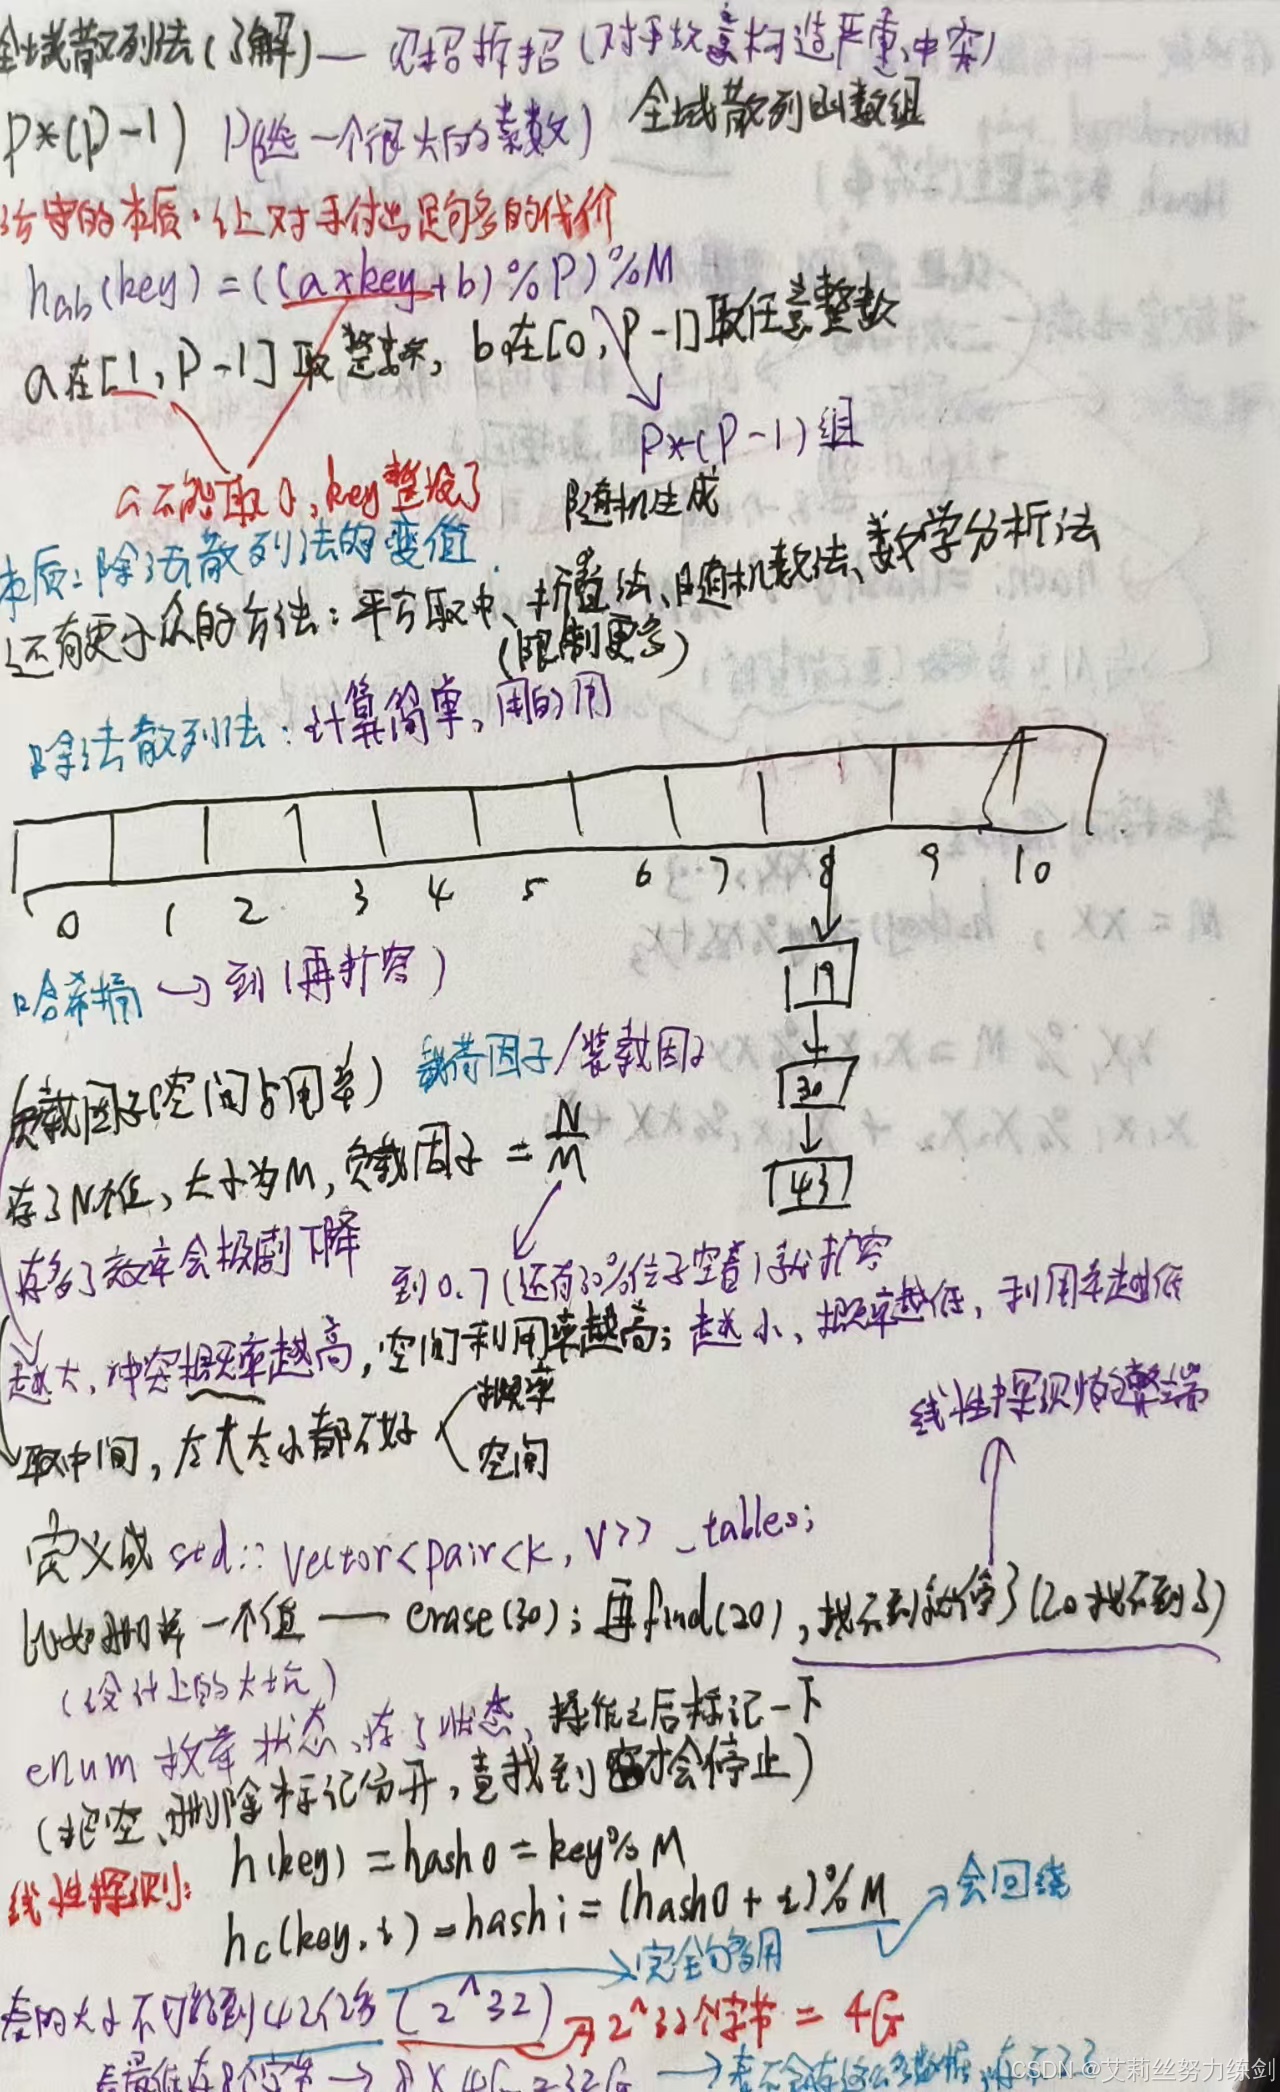 全域散列法(了解)— 见招拆招(对手故意构造严重冲突)
P*(P-1) P(选一个很大的素数) 全域散列函数组
的本质:让对手付出足够多的代价
hab(key)=((a×key+b)%P)%M
a在[1,P-1]取整数,b在[0,P-1]取任意整数
P*(P-1)组
a不能取0,key整没了 随机生成
本质:除法散列法的变值.
还有更小众的方法:平方取中、折叠法、随机数法、数学分析法
(限制更多)
除法散列法:计算简单,用的
0 1 2 3 4 5 6 7 8 9 10
哈希桶→到1再扩容)
19
负载因子(空间占用率) 载荷因子/装载因子
30
存了N个值,大小为M,负载因子=N/M
43
存多了效率会极剧下降
到0.7(还有30%位子空着)就扩容
越大,冲突概率越高,空间利用率越高;越小,概率越低,利用率越低
概率
线性探测的弊端
取中间,太大太小都不好
空间
定义成 std::vector<pair<K,V>> _tables;
比如删掉一个值 — erase(30);再find(20),找不到就停了(20找不到了)
(设计上的大坑)
enum 枚举状态,存了状态,操作之后标记一下
(把空、删除标记分开,查找到空才会停止)
线性探测: h(key)=hash0=key%M
hc(key,i)=hashi=(hash0+i)%M 会回绕
完全够用
表的大小不可能到42亿多(2^32) 2^32个字节=4G
8个字节→8×4G=32G →
CSDN @艾莉丝努力练剑